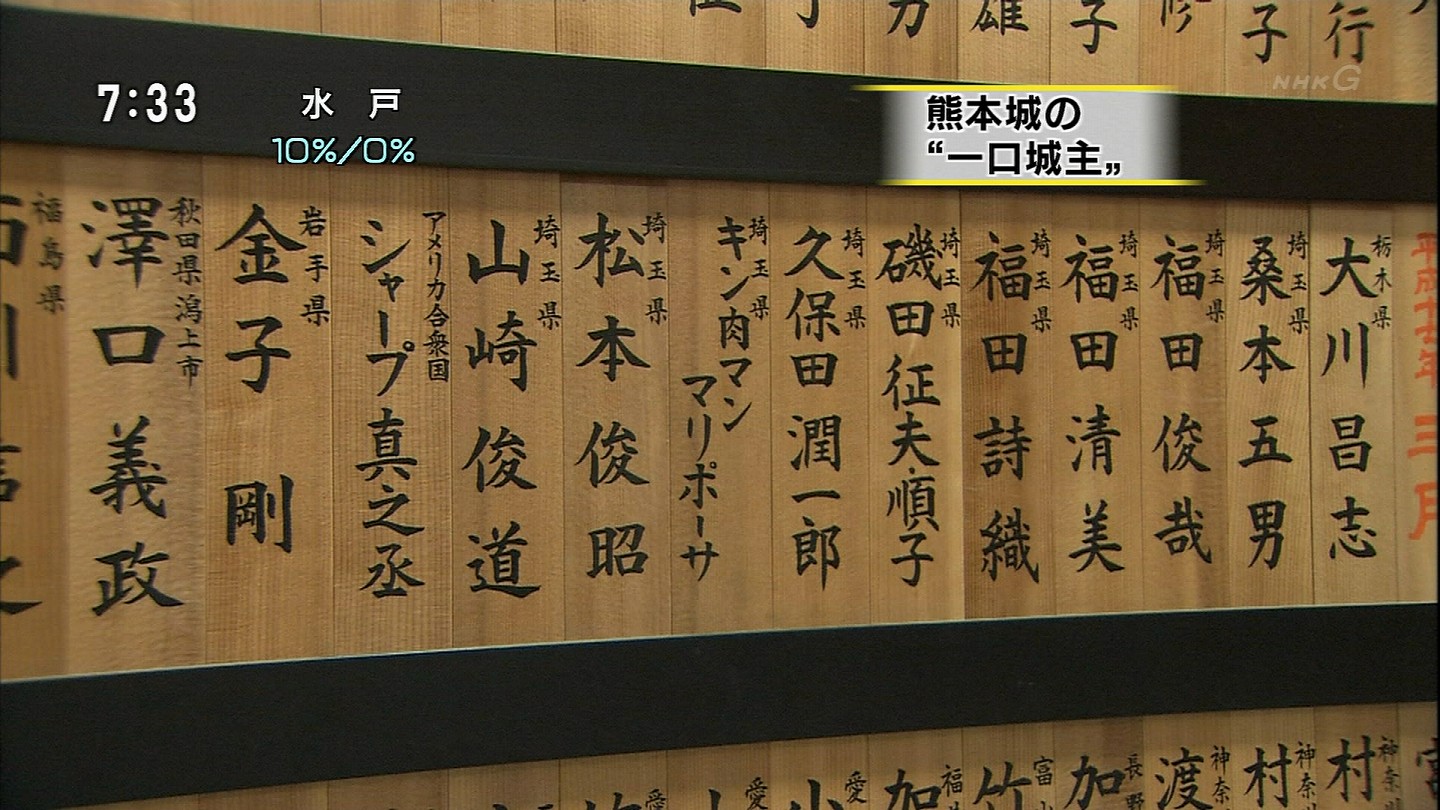 7:33
水戸
10%/0%
NHK G
熊本城の
“一口城主„
子
行
雄
子
修
平成十七年 三月
栃木県
大川昌志
埼玉県
桑本五男
埼玉県
福田俊哉
埼玉県
福田清美
埼玉県
福田詩織
埼玉県
磯田征夫・順子
埼玉県
久保田潤一郎
埼玉県
キン肉マン
マリポーサ
埼玉県
松本俊昭
埼玉県
山崎俊道
アメリカ合衆国
シャープ真之丞
岩手県
金子剛
秋田県潟上市
澤口義政
福島県
神奈
村
神奈
村
神奈
渡
長野
加
富山
竹
福
加
愛
愛
愛